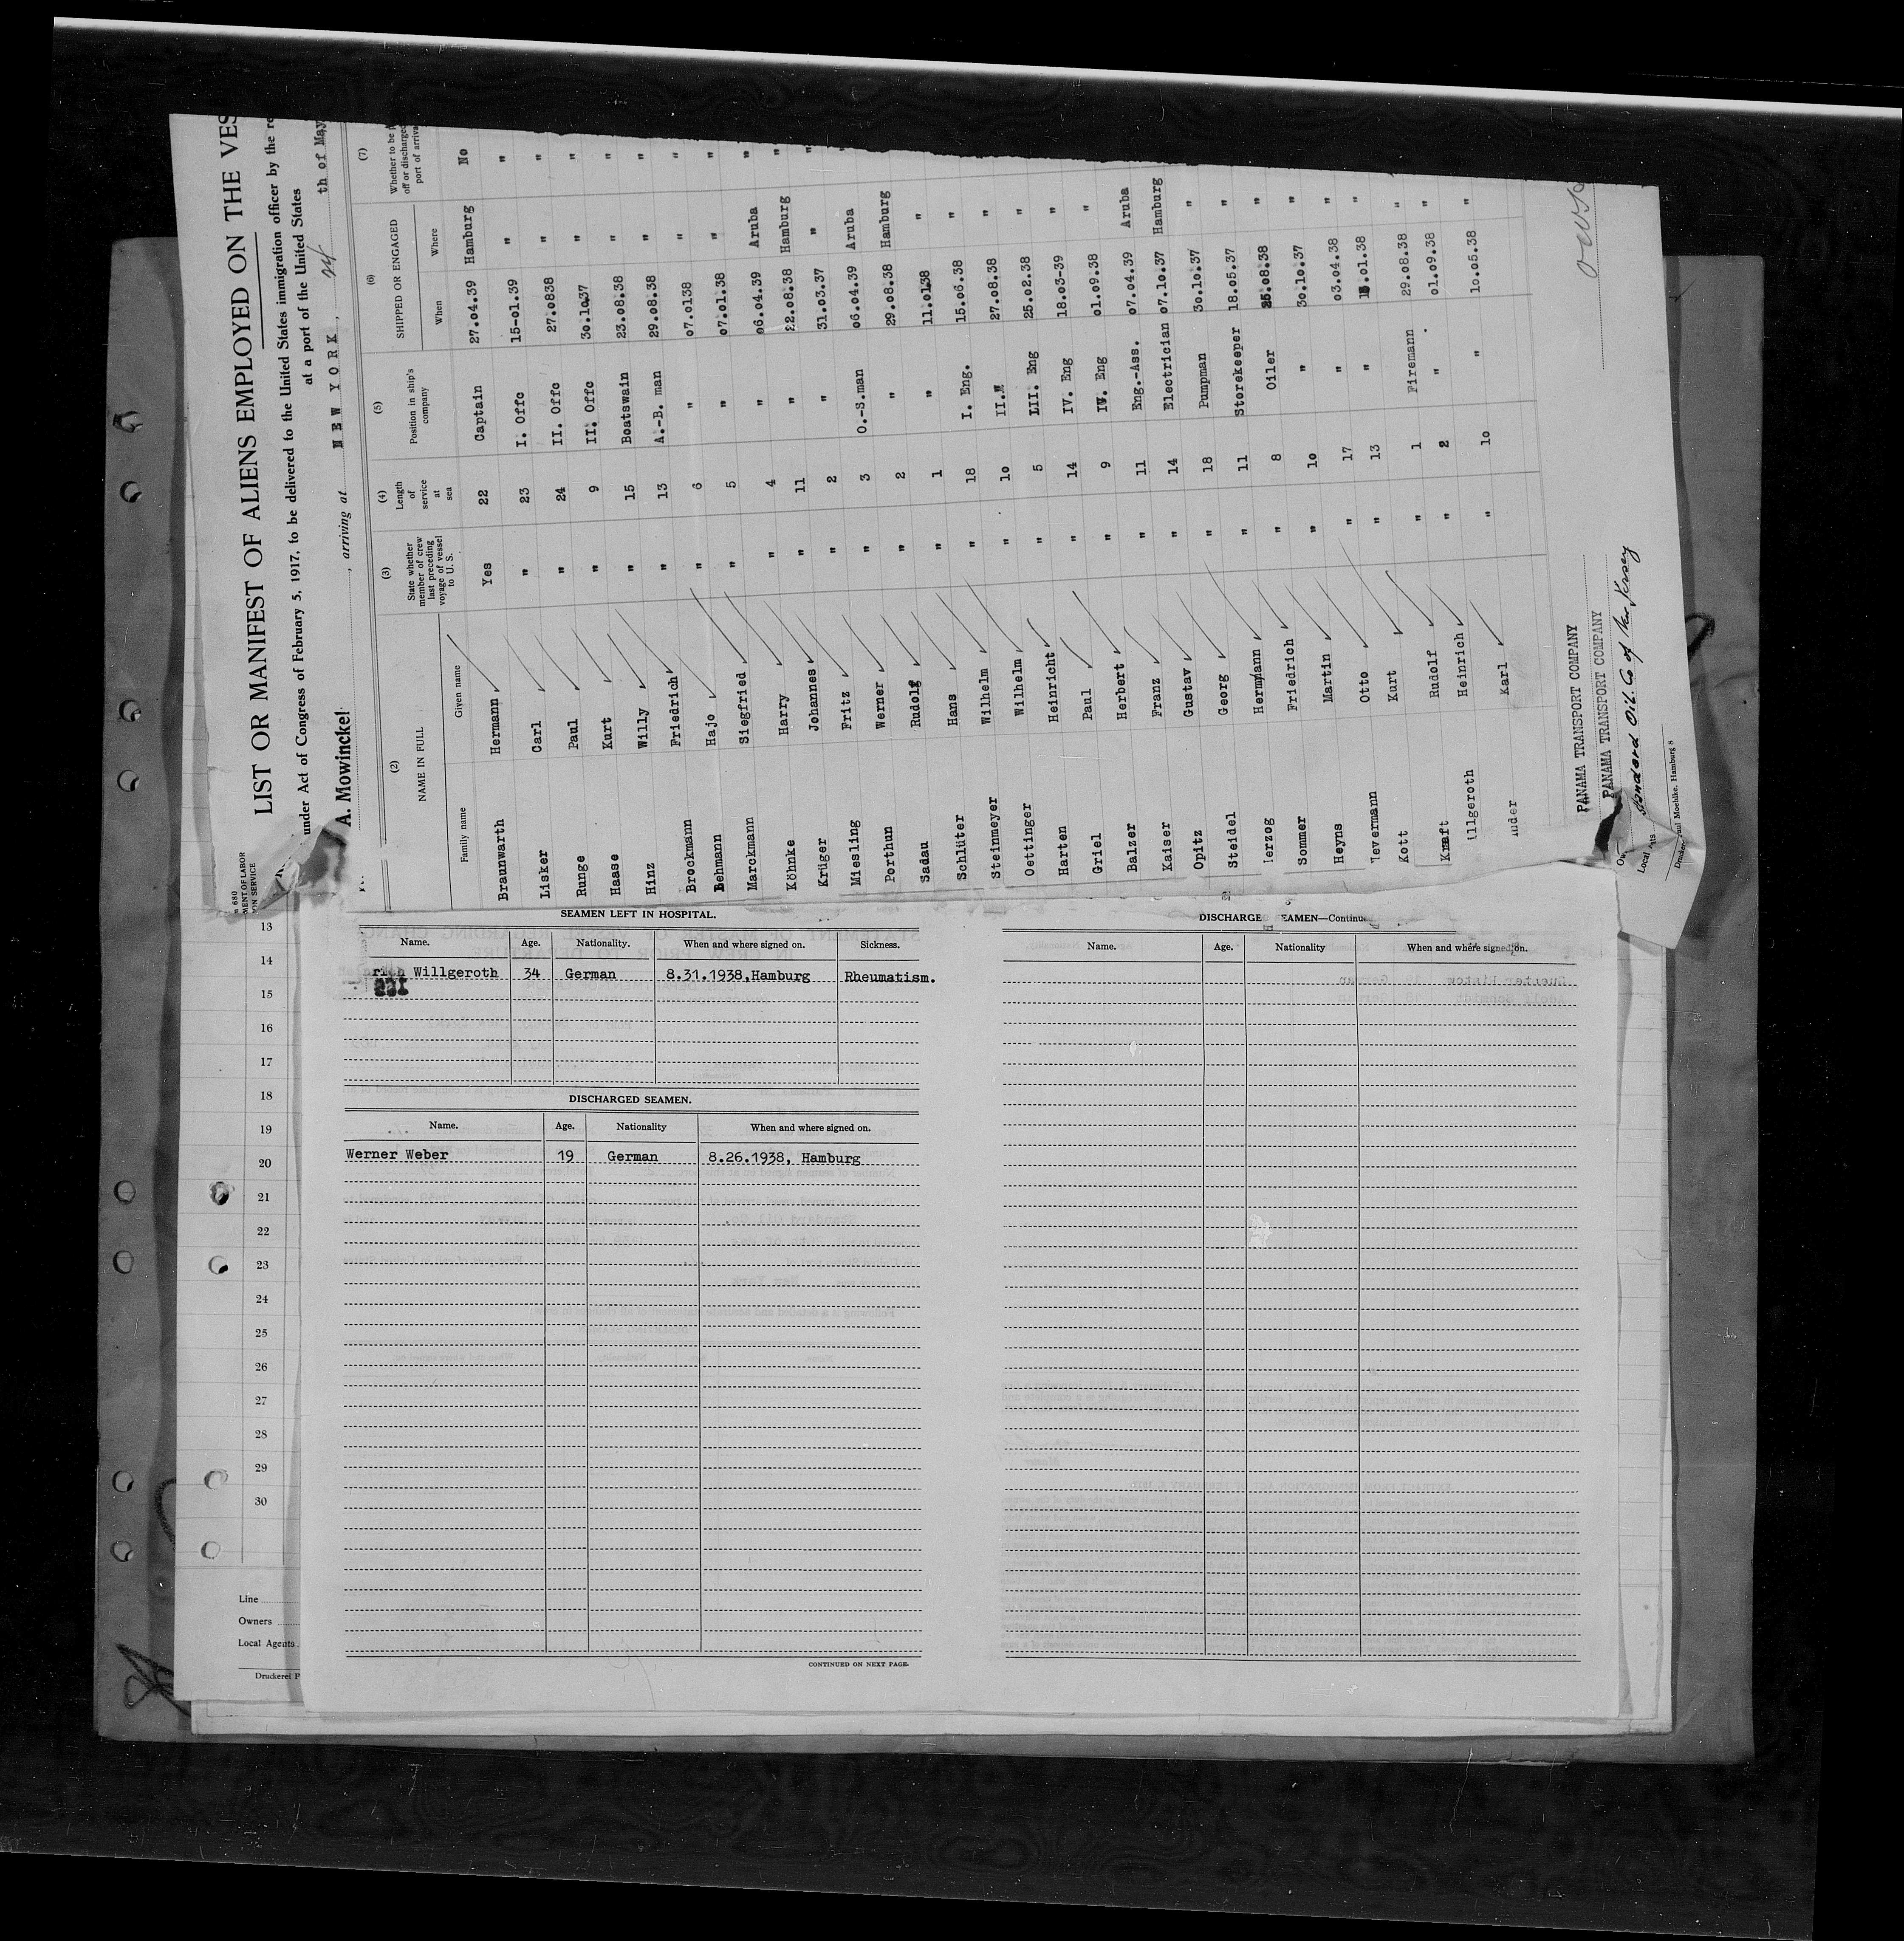 LIST OR MANIFEST OF ALIENS EMPLOYED ON THE VES
under Act of Congress of February 5, 1917, to be delivered to the United States immigration officer by the re
at a port of the United States
A. Mowinckel , arriving at NEW YORK , th of May
(2) (3) (4) (5) (6) (7)
NAME IN FULL
Family name Given name
State whether member of crew last preceding voyage of vessel to U. S.
Length of service at sea
Position in ship's company
SHIPPED OR ENGAGED
When Where
Whether to be
off or discharged
port of arriva
Braunwarth Hermann Yes 22 Captain 27.04.39 Hamburg No
Lisker Carl " 23 I. Offc 15-01.39 " "
Runge Paul " 24 II. Offc 27.0838 " "
Haase Kurt " 9 II. Offc 30.1037 " "
Hinz Willy " 15 Boatswain 23.08.38 " "
Brockmann Friedrich " 13 A.-B. man 29.08.38 " "
Behmann Hajo " 6 " 07.0138 " "
Marckmann Siegfried " 5 " 07.01.38 " "
Köhnke Harry " 4 " 06.04.39 Aruba "
Krüger Johannes " 11 " 22.08.38 Hamburg "
Miesling Fritz " 2 " 31.03.37 " "
Porthun Werner " 3 O.-S.man 06.04.39 Aruba
Sadau Rudolf " 2 " 29.08.38 Hamburg
Schlüter Hans " 1 " 11.0138 "
Steinmeyer Wilhelm " 18 I. Eng. 15.06.38 "
Oettinger Wilhelm " 10 II." 27.08.38 "
Harten Heinricht " 5 III. Eng 25.02.38 "
Griel Paul " 14 IV. Eng 18.03-39 "
Balzer Herbert " 9 IV. Eng 01.09.38 "
Kaiser Franz " 11 Eng.-Ass. 07.04.39 Aruba
Opitz Gustav " 14 Electrician 07.10.37 Hamburg
Steidel Georg " 18 Pumpman 30.10.37 "
erzog Hermann " 11 Storekeeper 18.05.37 "
Sommer Friedrich " 8 Oiler 25.08.38 "
Heyns Martin " 10 " 30.10.37 "
evermann Otto " 17 " 03.04.38 "
Kott Kurt " 13 " .01.38 "
Kraft Rudolf " 1 Firemann 29.08.38 "
illgeroth Heinrich " 2 " 01.09.38 "
uder Karl " 10 " 10.05.38 "
PANAMA TRANSPORT COMPANY
PANAMA TRANSPORT COMPANY
Standard Oil. Co of New Jersey
Local
Druckerei Paul Moehlke, Hamburg 8
680
MENT OF LABOR
ON SERVICE
13
14
15
16
17
18
19
20
21
22
23
24
25
26
27
28
29
30
Line
Owners
Local Agents
Druckerei P
SEAMEN LEFT IN HOSPITAL.
Name. Age. Nationality. When and where signed on. Sickness.
rich Willgeroth 34 German 8.31.1938,Hamburg Rheumatism.
DISCHARGED SEAMEN.
Name. Age. Nationality When and where signed on.
Werner Weber 19 German 8.26.1938, Hamburg
CONTINUED ON NEXT PAGE.
DISCHARGE EAMEN—Continue
Name. Age. Nationality When and where signed on.